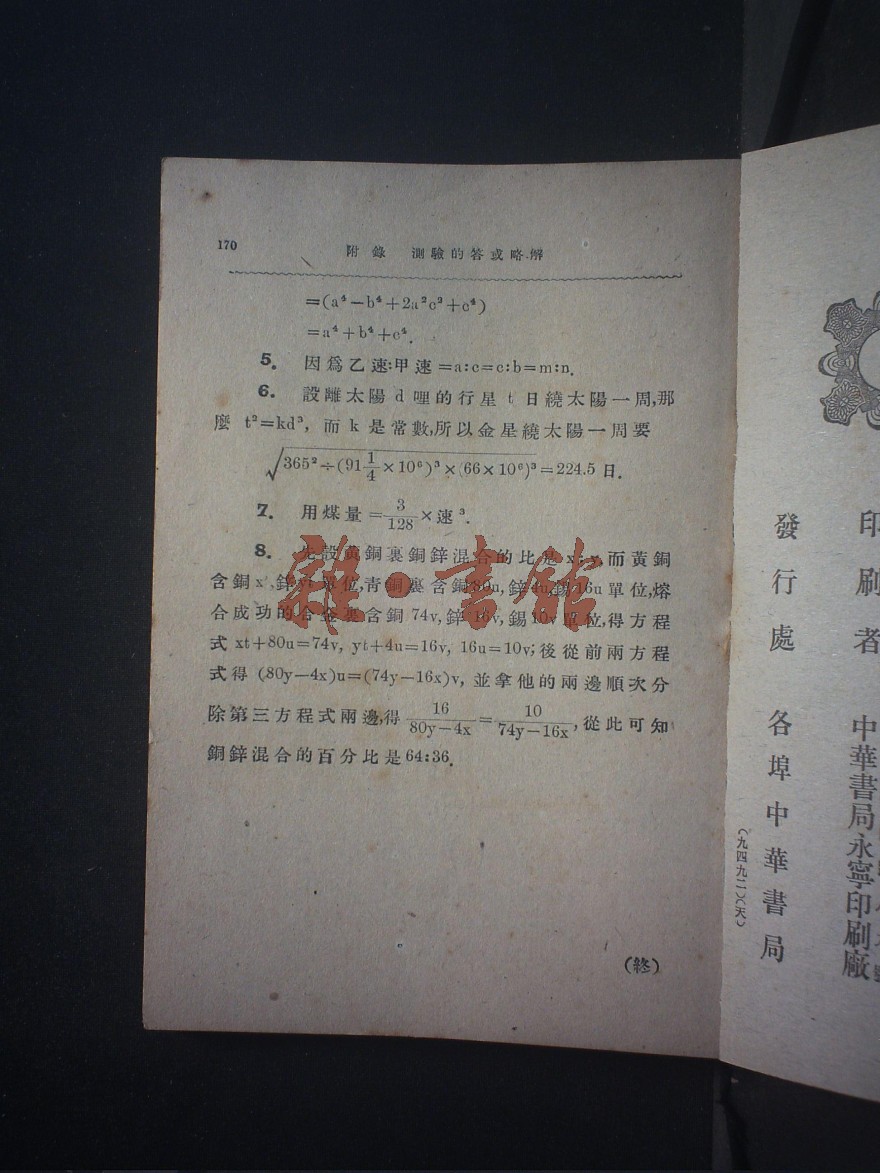 170
附錄 測驗的答或略解
=(a⁴−b⁴+2a²c²+c⁴)
=a⁴+b⁴+c⁴.
5. 因爲乙速:甲速=a:c=c:b=m:n.
6. 設離太陽 d 哩的行星 t 日繞太陽一周,那
麼 t²=kd³, 而 k 是常數,所以金星繞太陽一周要
√365²÷(91 1/4 ×10⁶)³×(66×10⁶)³=224.5 日.
7. 用煤量=3/128×速³.
8. 先設黃銅裏銅鋅混合的比是 x:y, 而黃銅
含銅 xt, 鋅 yt 單位,靑銅裏含銅 80u, 鋅 4u, 錫 16u 單位,熔
合成功的合金裏含銅 74v, 鋅 16v, 錫 10v 單位,得方程
式 xt+80u=74v, yt+4u=16v, 16u=10v; 後從前兩方程
式得 (80y−4x)u=(74y−16x)v, 並拿他的兩邊順次分
除第三方程式兩邊,得 16/(80y−4x)=10/(74y−16x), 從此可知
銅鋅混合的百分比是 64:36.
(終)
雜·書館
印刷者 中華書局永寧印刷廠
發行處 各埠中華書局
(九四九二)(天)